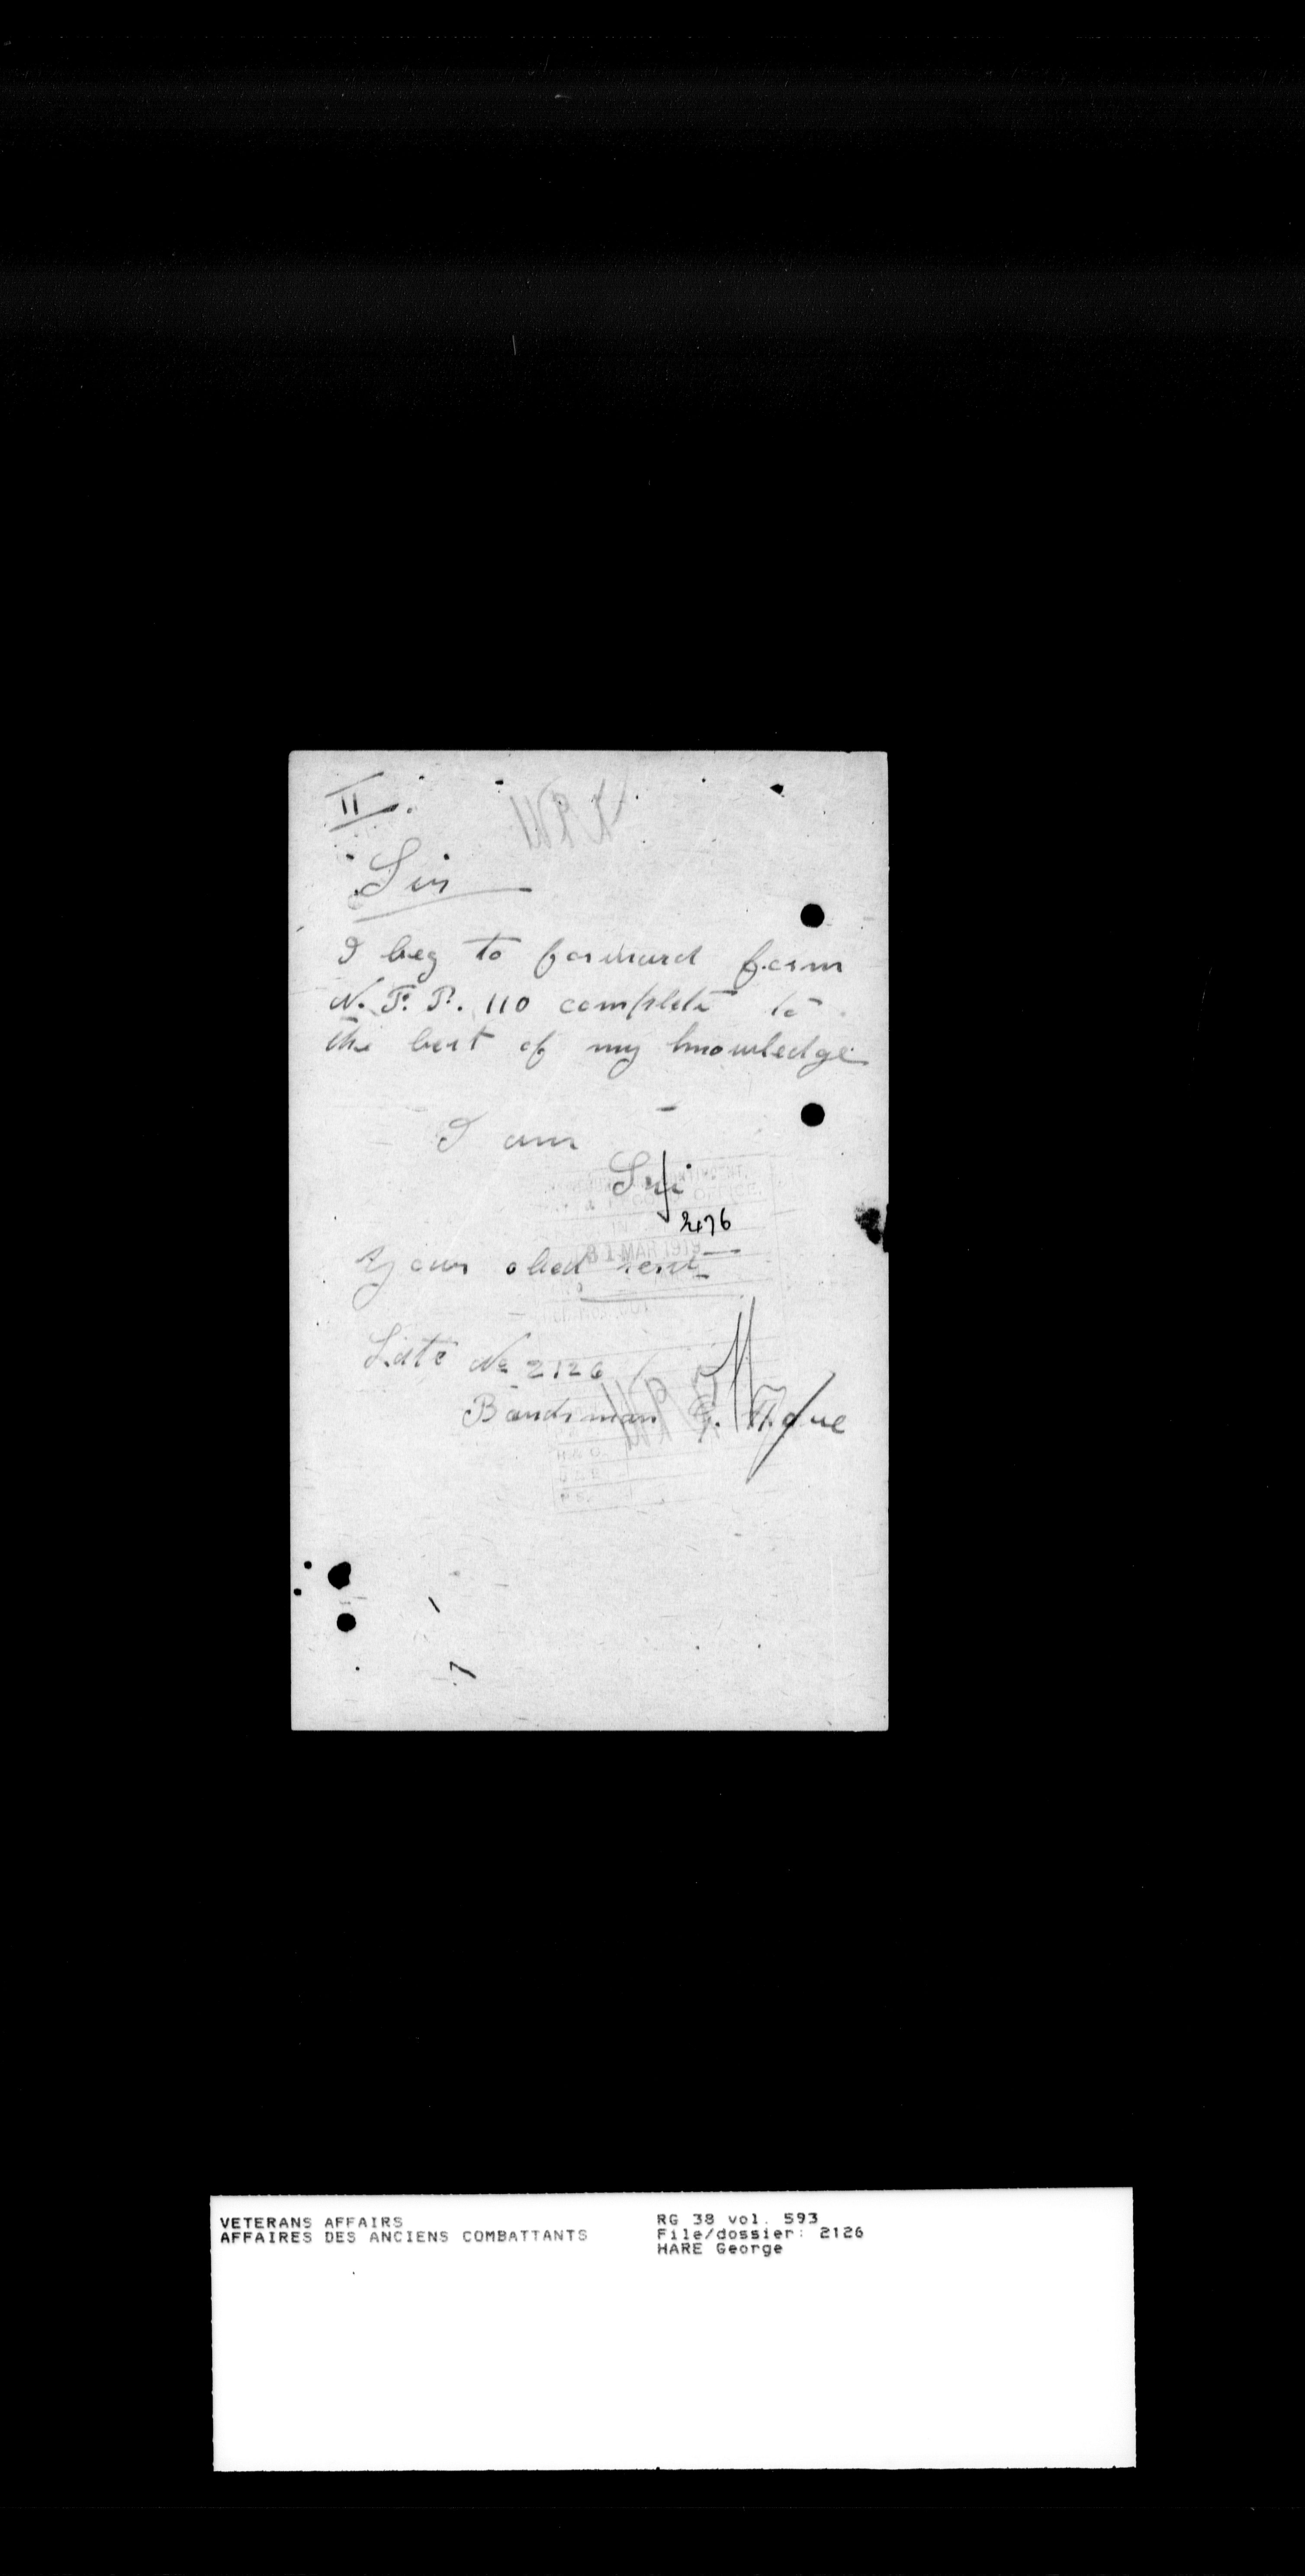 II.
Sir
I beg to forward form
N. F. P. 110 complete to
the best of my knowledge
I am
Sir
2476
Your obed sert
MAR 1919
Late No 2126
Bandsman G. Hare
VETERANS AFFAIRS
AFFAIRES DES ANCIENS COMBATTANTS
RG 38 vol. 593
File/dossier: 2126
HARE George